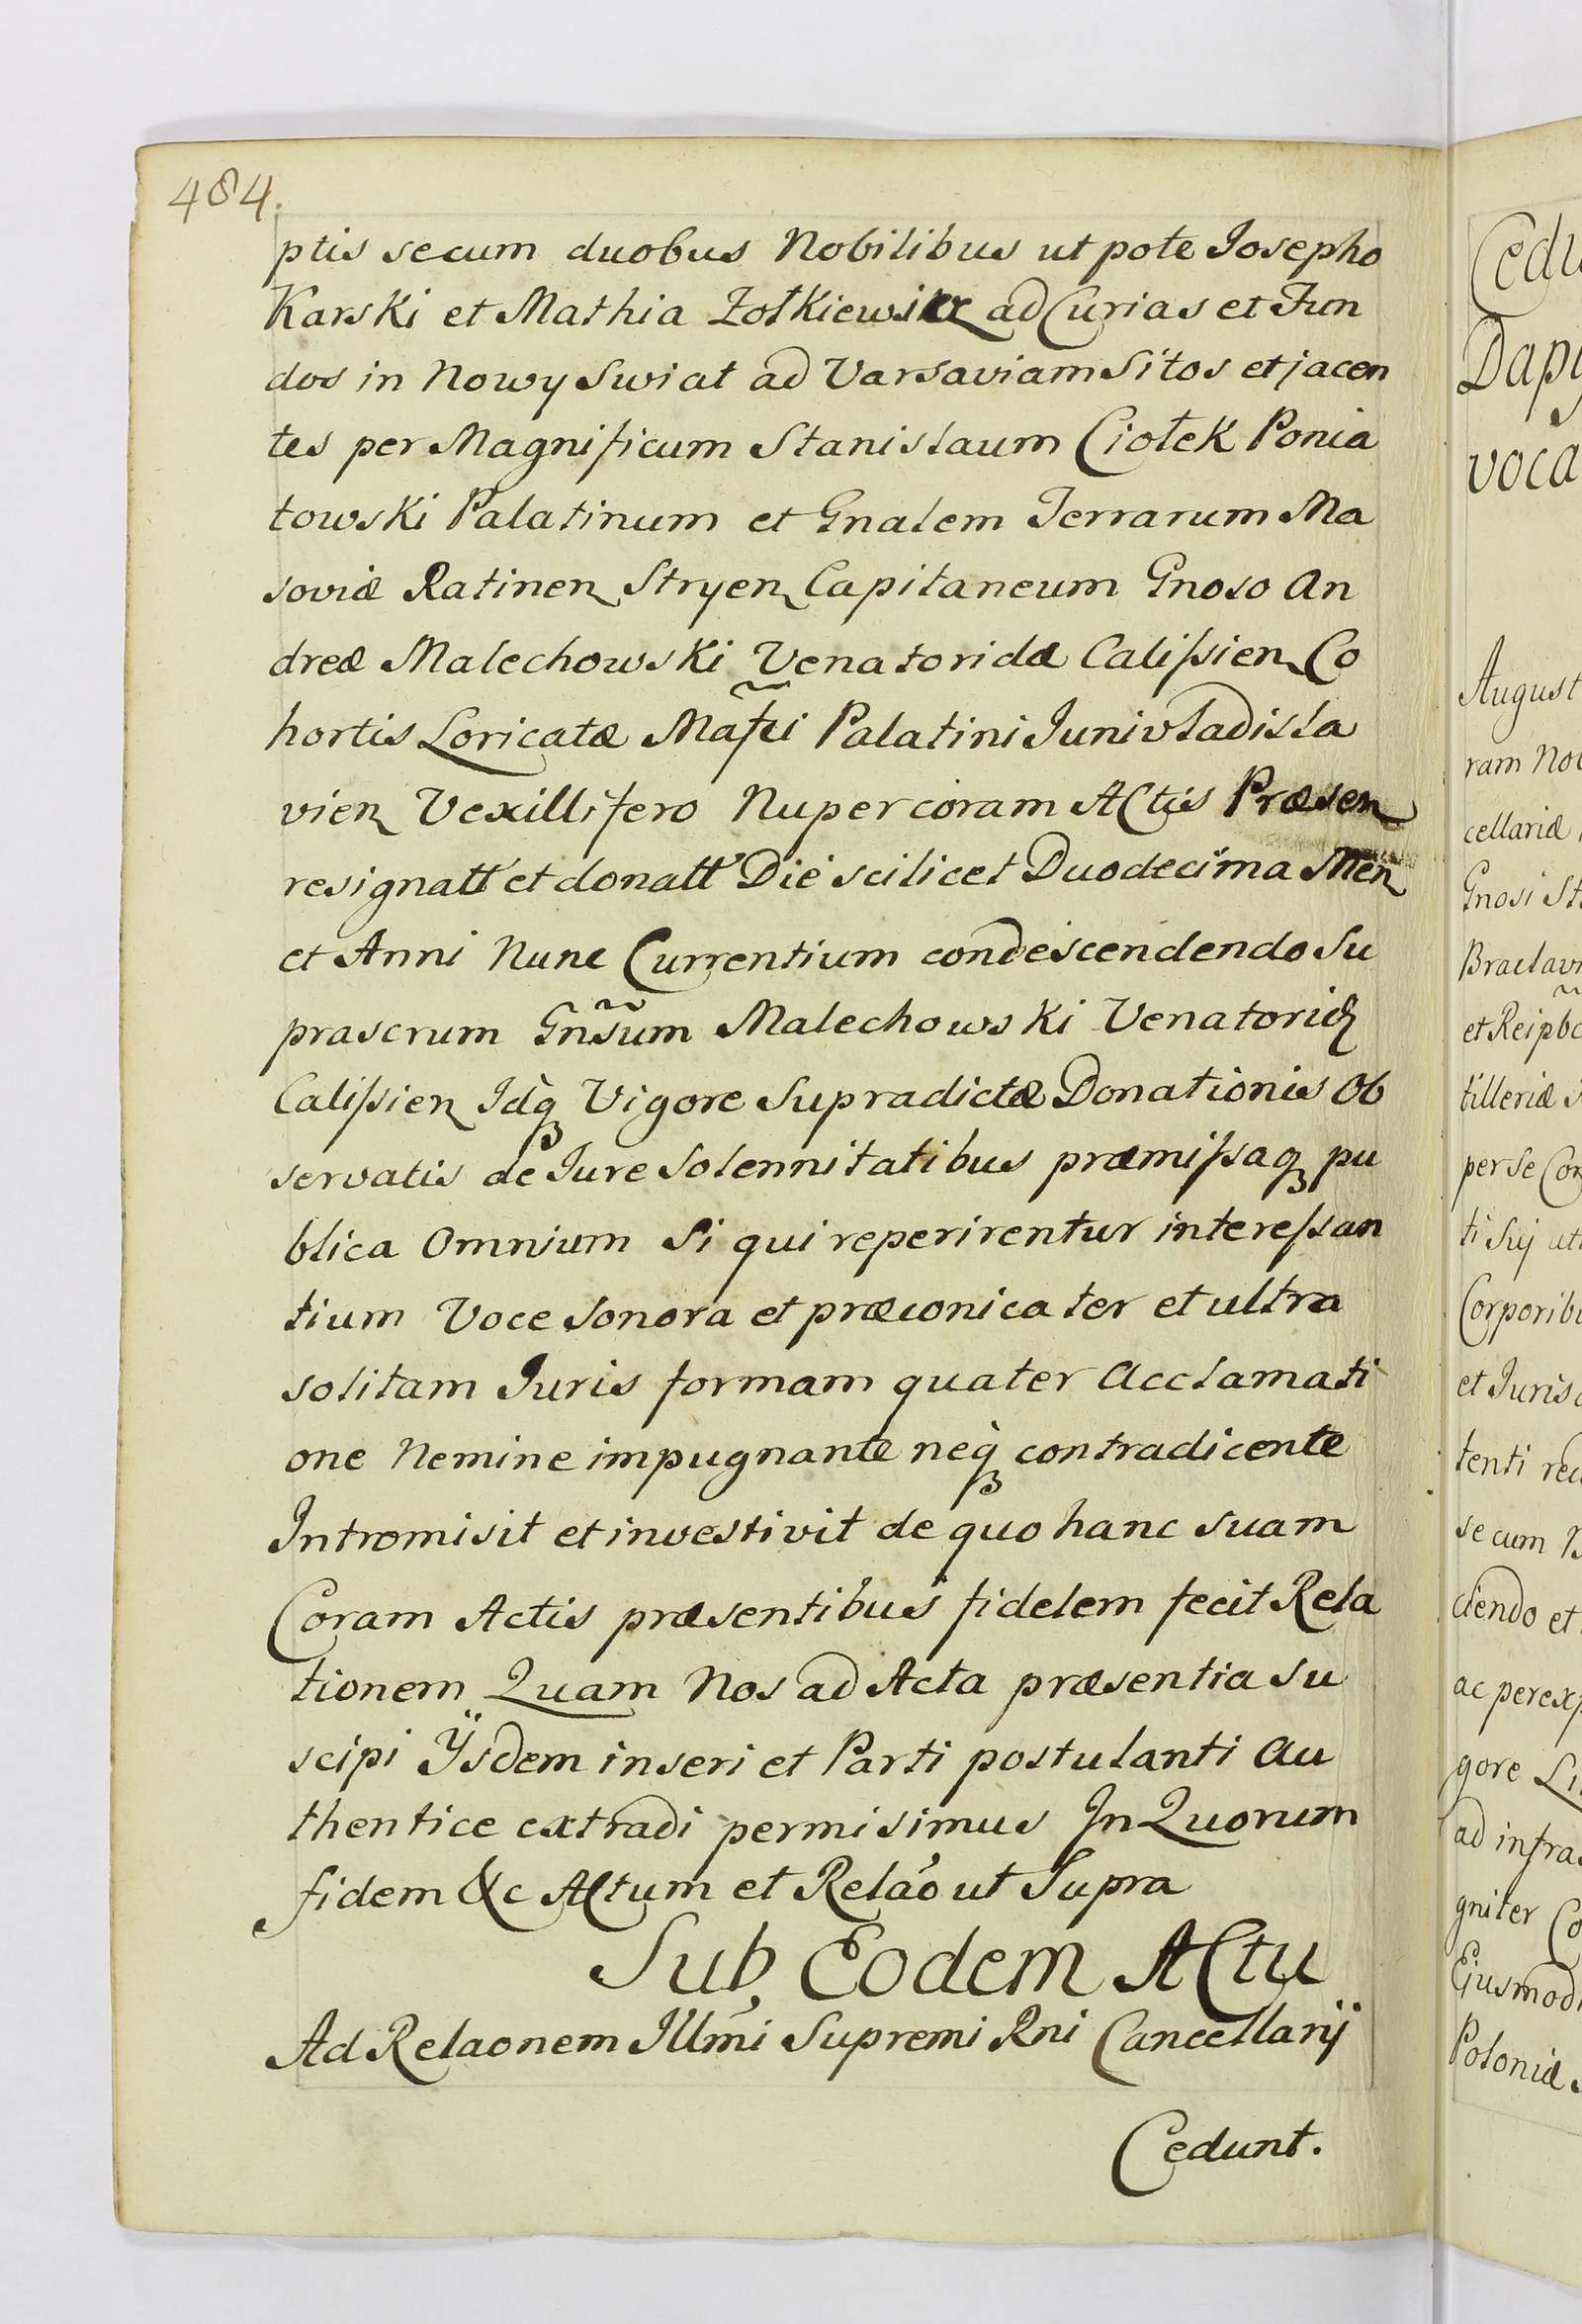 484.
ptis secum duobus Nobilibus ut pote Josepho
Karski et Mathia Zołkiewski ad Curias et Fun
dos in Nowy Swiat ad Varsaviam Sitos et jacen
tes per Magnificum Stanislaum Ciołek Ponia
towski Palatinum et Gnalem Terrarum Ma
soviæ Ratinen Stryen Capitaneum Gnoso An
dreæ Malechowski Venatoridæ Calissien Co
hortis Loricatæ Mafci Palatini Junivladisla
vien Vexillifero Nuper coram Actis Præsen
resignatt et donatt Die scilicet Duodecima Men
et Anni Nunc Currentium condescendendo Su
prascrum Gnsum Malechowski Venatorid
Calissien Idq Vigore Supradictæ Donationis Ob
servatis de Jure Solennitatibus præmissaq pu
blica Omnium Si qui reperirentur interessan
tium Voce Sonora et præconica ter et ultra
solitam Juris formam quater Acclamati
one Nemine impugnante neq contradicente
Intromisit et investivit de quo hanc suam
Coram Actis præsentibus fidelem fecit Rela
tionem Quam Nos ad Acta præsentia Su
scipi Ÿsdem inseri et Parti postulanti Au
thentice extradi permisimus In Quorum
fidem &c Actum et Relao ut Supra
Sub Eodem Actu
Ad Relaonem Illmi Supremi Rni Cancellarij
Cedunt.
Cedu
Dapi
voca
August
ram Nov
cellariæ
Gnosi St
Braclavi
et Reipbc
tilleriæ
per se Con
ti Sij uti
Corporibu
et Juris
tenti rec
secum
ciendo et
ac perexp
gore Li
ad infra
gniter Co
Ejusmodi
Poloniæ